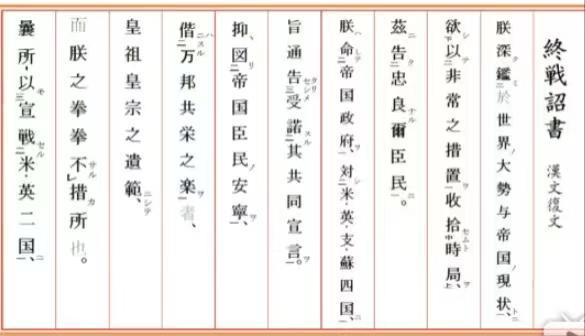 終戦詔書 漢文復文
朕深鑑於世界大勢与帝国現状、
欲以非常之措置收拾時局、
茲告忠良爾臣民。
朕命帝国政府、対米・英・支・蘇四国、
旨通告受諾其共同宣言。
抑、図帝国臣民安寧、
偕万邦共栄之楽者、
皇祖皇宗之遺範、
而朕之拳拳不措所也。
曩所以宣戦米・英二国、